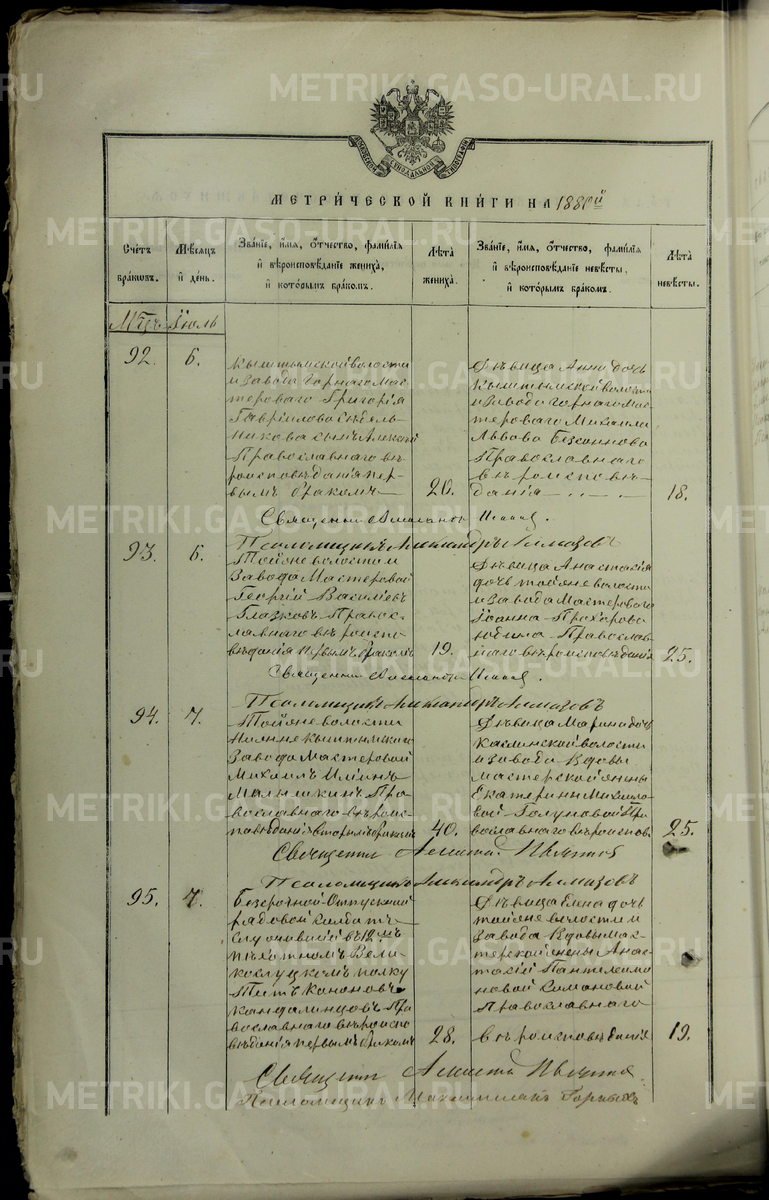 METRIKI.GASO-URAL.RU
МЕТРИ́ЧЕСКОЙ КНИ́ГИ НА 1880й
Сче́тъ бра́ковъ.
Мѣ́сяцъ и́ де́нь.
Зва́нїе, и́мя, о́тчество, фами́лїя и́ вѣроисповѣ́данїе жениха̀, и́ кото́рымъ бра́комъ.
Лѣ́та жениха̀.
Зва́нїе, и́мя, о́тчество, фами́лїя и́ вѣроисповѣ́данїе невѣ́сты, и́ кото́рымъ бра́комъ.
Лѣ́та невѣ́сты.
Мцъ Іюль
92. 6.
Кыштымской волости
и завода Горнаго Мас-
тероваго Григорія
Гаврілова Сѣдель-
никова сынъ Алексій
Православнаго вѣ-
роисповѣданія пер-
вымъ бракомъ
20.
Дѣвица Анна дочь
Кыштымской волости
и завода горнаго мас-
тероваго Михаила
Львова Безсонова
Православнаго
вѣроисповѣ-
данія
18.
Псаломщикъ Александръ Алмазовъ
93. 6.
Тойже волости и
Завода Мастеровой
Георгій Васильевъ
Глазковъ Правос-
лавнаго вѣроиспо-
вѣданія первымъ бракомъ
19.
Дѣвица Анастасія
дочь тойже волости
и завода Мастероваго
Іоанна Прохорова
Православ-
наго вѣроисповѣданія
25.
Псаломщикъ Александръ Алмазовъ
94. 7.
Тойже волости
Нижнекыштымскаго
Завода Мастеровой
Михаилъ Ильинъ
Малышкинъ Пра-
вославнаго вѣроис-
повѣданія вторымъ бракомъ
40.
Дѣвица Марина дочь
Каслинской волости
и завода вдовы
мастерской жены
Екатерины Михайло-
вой Голуновой Пра-
вославнаго вѣроиспов.
25.
Псаломщикъ Александръ Алмазовъ
95. 7.
Безсрочной-Отпускный
рядовой солдатъ
служившій въ 12мъ
пѣхотномъ Вели-
колуцкомъ полку
Титъ Кононовъ
Кандалинцовъ Пра-
вославнаго вѣроиспо-
вѣданія первымъ бракомъ
28.
Дѣвица Елена дочь
тойже волости и
завода Вдовы мас-
терской жены Анас-
тасіи Пантилеимо-
новой Симоновой
Православнаго
вѣроисповѣданія
19.
Псаломщикъ Максимиліанъ Горныхъ